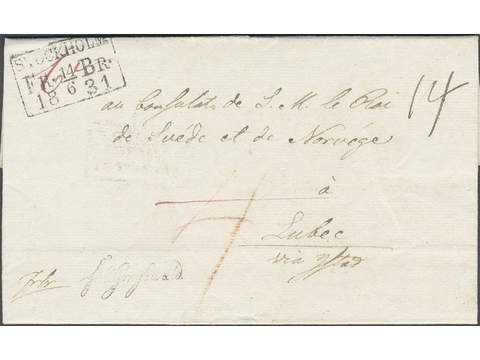 STOCKHOLM
FR. 14 BR.
18 6 31
14
au Consulat de S. M. le Roi
de Suède et de Norvège
à
Lubec
via Ystad
frbr